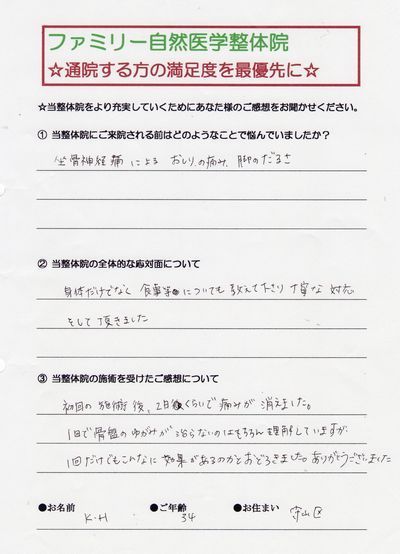 ファミリー自然医学整体院
☆通院する方の満足度を最優先に☆
☆当整体院をより充実していくためにあなた様のご感想をお聞かせください。
① 当整体院にご来院される前はどのようなことで悩んでいましたか？
坐骨神経痛による おしりの痛み、脚のだるさ
② 当整体院の全体的な応対面について
身体だけでなく 食事等についても教えて下さり 丁寧な 対応
をして頂きました
③ 当整体院の施術を受けたご感想について
初回の施術後、2日くらいで痛みが消えました。
1回で骨盤のゆがみが治らないのはもちろん理解していますが
1回だけでもこんなに効果があるのかとおどろきました。ありがとうございました
●お名前 ●ご年齢 ●お住まい
K.H 34 守山区